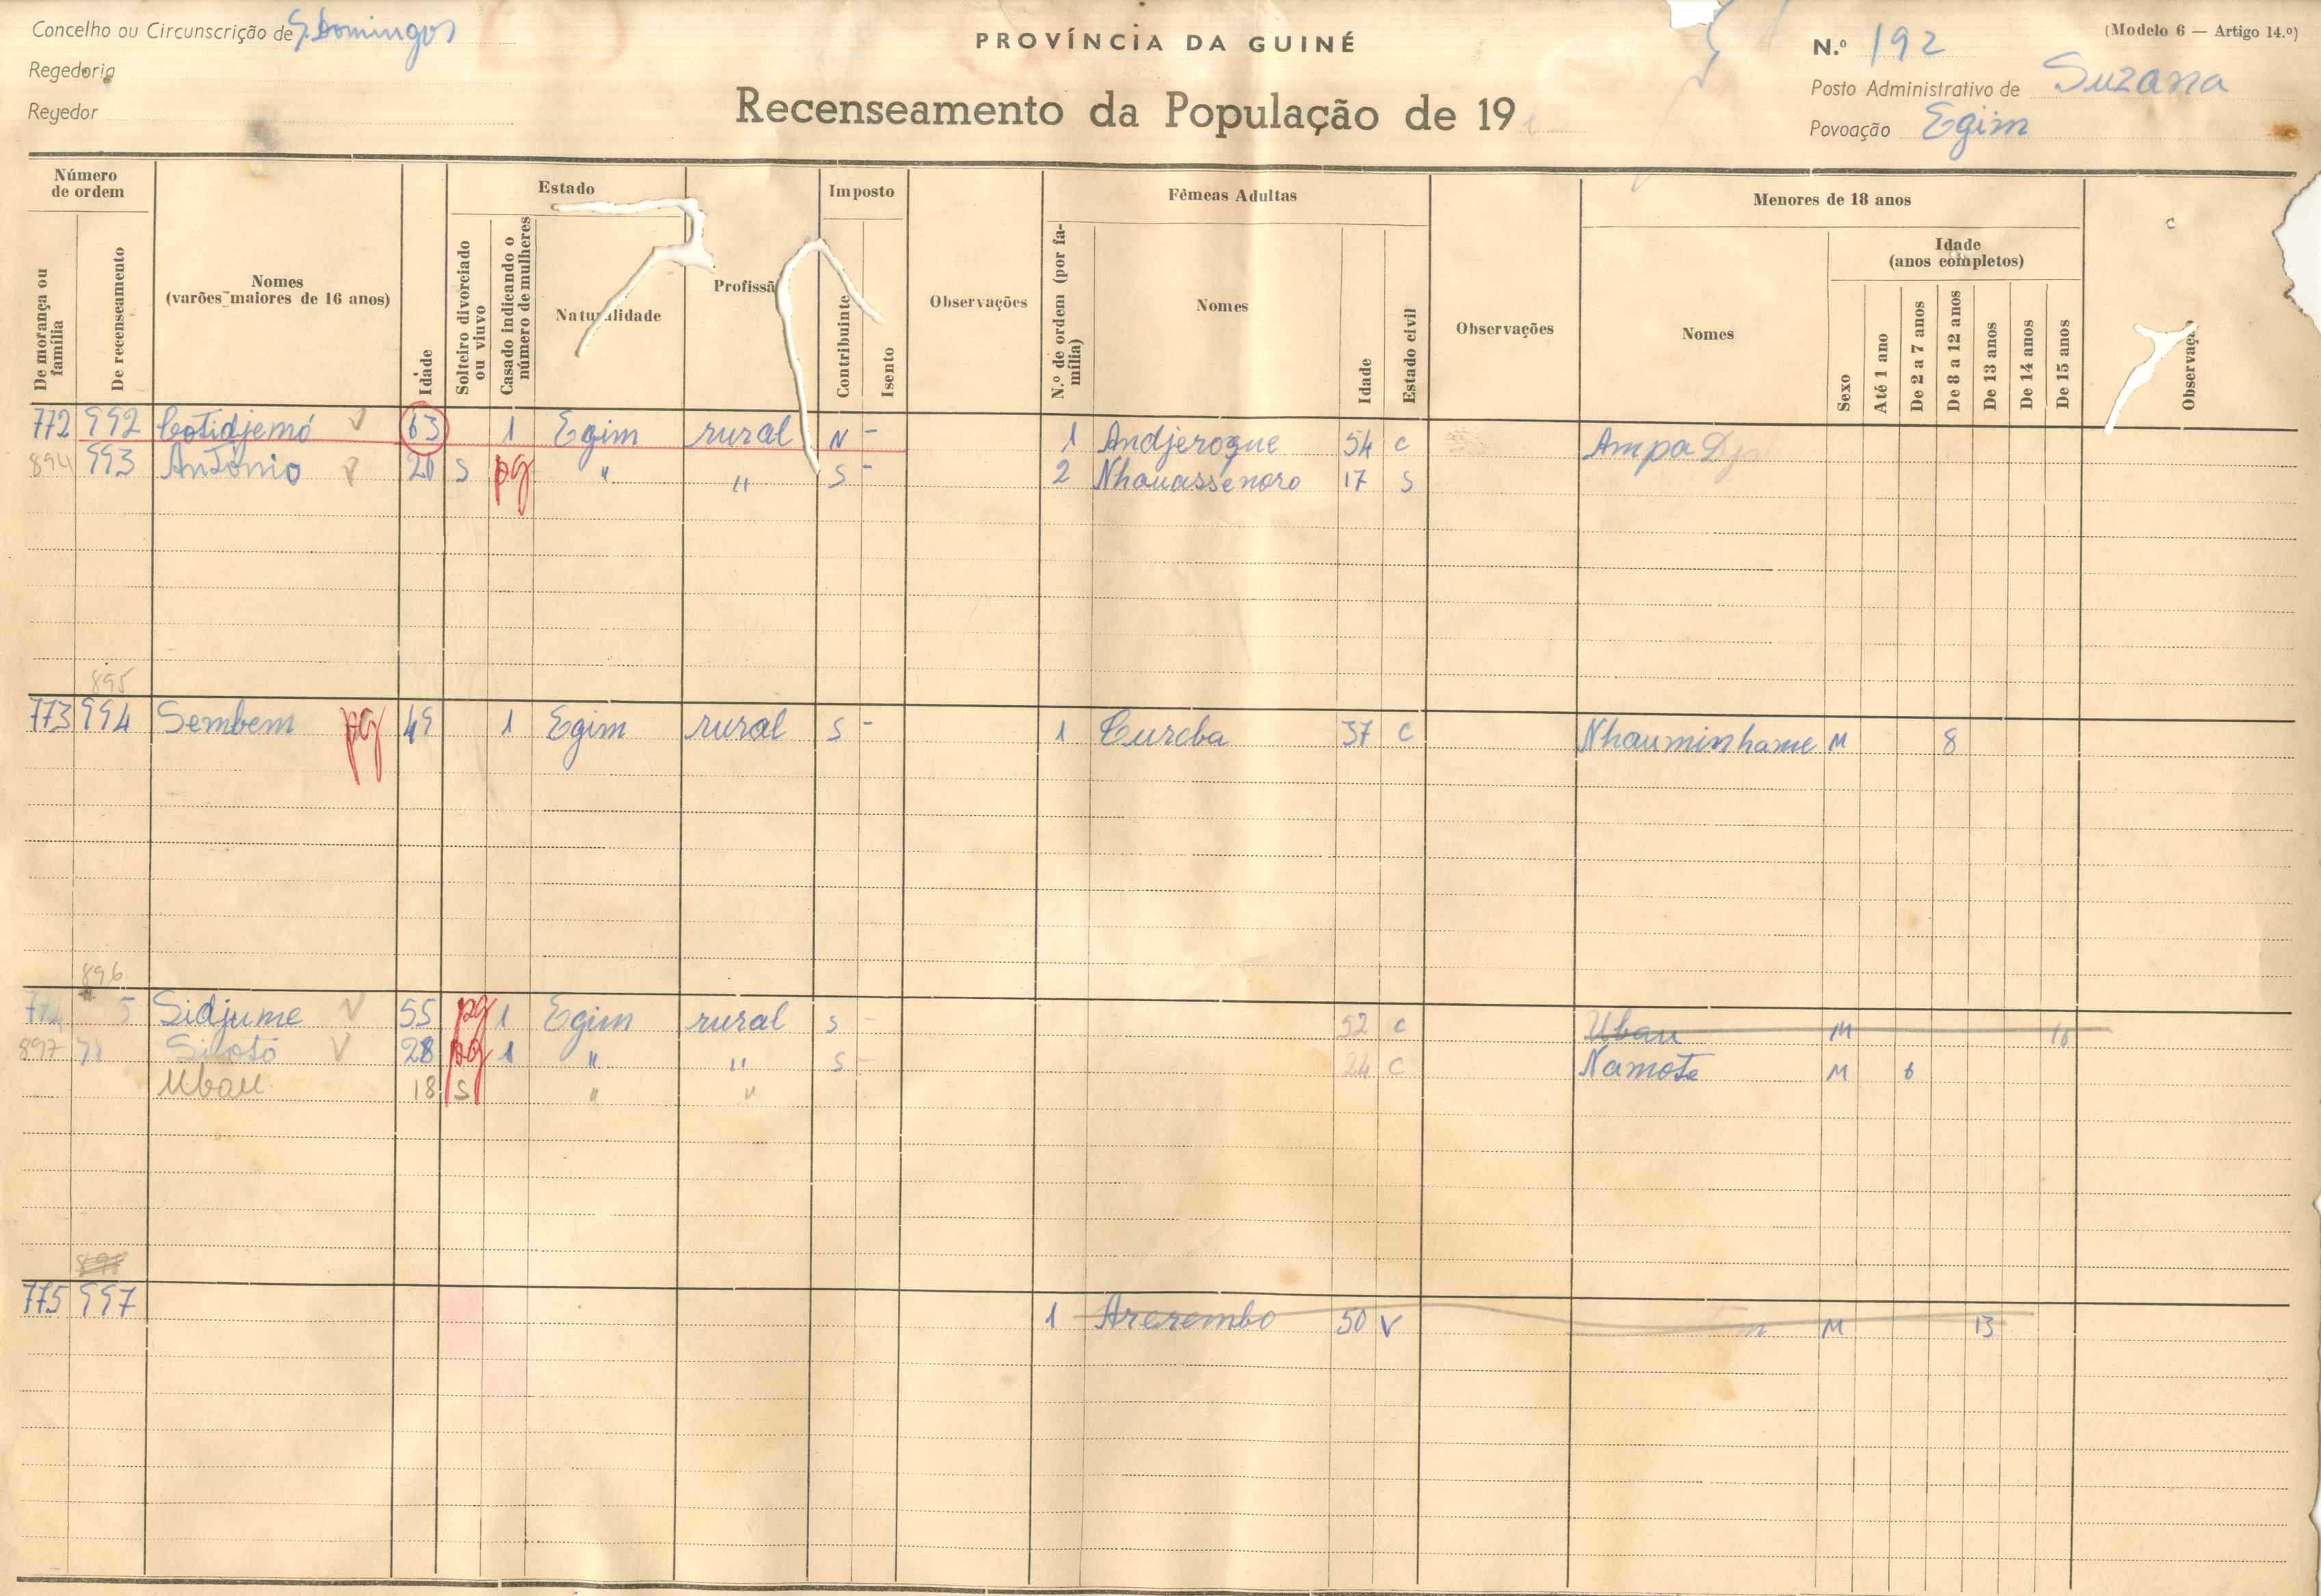 Concelho ou Circunscrição de S. Domingos
Regedoria
Regedor
PROVÍNCIA DA GUINÉ
Recenseamento da População de 19
(Modelo 6 — Artigo 14.º)
N.º 192
Posto Administrativo de Suzana
Povoação Egim
Número de ordem
De morança ou família
De recenseamento
Nomes (varões maiores de 16 anos)
Idade
Estado
Solteiro divorciado ou viuvo
Casado indicando o número de mulheres
Naturalidade
Profissã
Imposto
Contribuinte
Isento
Observações
Fêmeas Adultas
N.º de ordem (por família)
Nomes
Idade
Estado civil
Observações
Menores de 18 anos
Nomes
Sexo
Idade (anos completos)
Até 1 ano
De 2 a 7 anos
De 8 a 12 anos
De 13 anos
De 14 anos
De 15 anos
Observaç
772 992 Cotidjemó V 63 1 Egim rural N - 1 Andjeroque 54 c Ampa
894 993 António 20 S pg " " S - 2 Nhauassénoro 17 S
895
773 994 Sembem pg 49 1 Egim rural S - 1 Cureba 37 c Nhauminhame M 8
896
5 Sidjume V 55 pg 1 Egim rural S - 52 c Ubau M
897 Silotó V 28 pg 1 " " S - 24 c Namote M 6
Ubau 18 S " "
898
775 997 1 Arerembo 50 V M 13